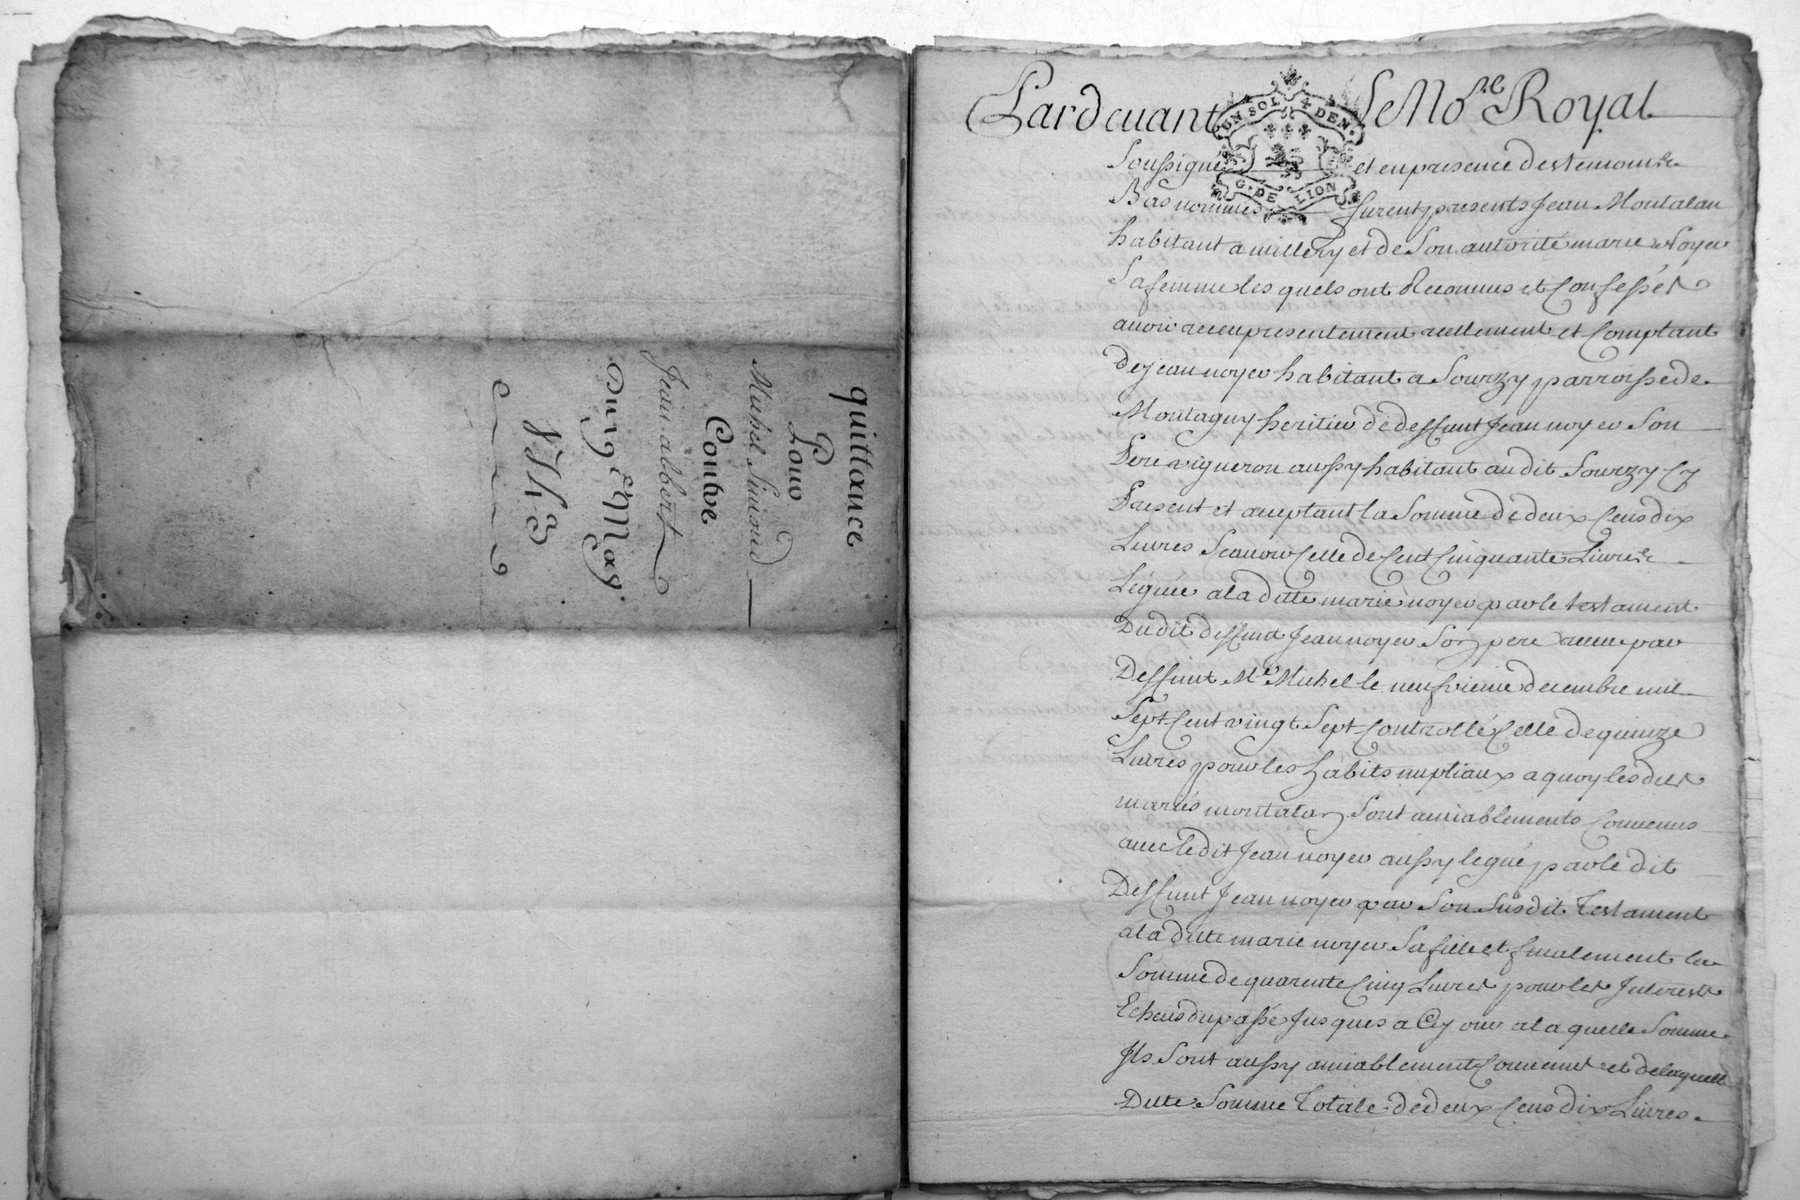 quittance
Pour
Michel Simond
Contre
Jean albert
Du 19 May
1743
Pardevant Le No.re Royal
UN SOL 4 DEN
G. DE LION
Soussigné et en presence des temoins
Bas nommes furent presents Jean Montalan
habitant a millery et de Son autorité marie Noyer
Sa femme les quels ont Reconnus et Confessés
avoir receu presentement reellement et Comptant
de jean noyer habitant a Sourzy parroisse de
Montagny heritier de deffunt Jean noyer Son
Pere vigneron aussy habitant au dit Sourzy Cy
Present et acceptant la Somme de deux Cens dix
Livres Scauoir Celle de Cent Cinquante Livres
Léguée a la ditte marie noyer par le testament
Du dit deffunt Jean noyer Son pere receu par
Deffunt Me Michel le neufvieme decembre mil
Sept Cent vingt Sept Controllé Celle de quinze
Livres pour les habits nuptiaux a quoy les dits
mariés montalan Sont amiablements Convenus
avec le dit Jean noyer aussy legué par le dit
Deffunt Jean noyer par Son Susdit Testament
a la ditte marie noyer Sa fille et finalement la
Somme de quarente Cinq Livres pour les Interests
Echeus du passé Jusques a Ce jour a la quelle Somme
Ils Sont aussy amiablement Convenus et de laquelle
Ditte Somme Totale de deux Cens dix Livres